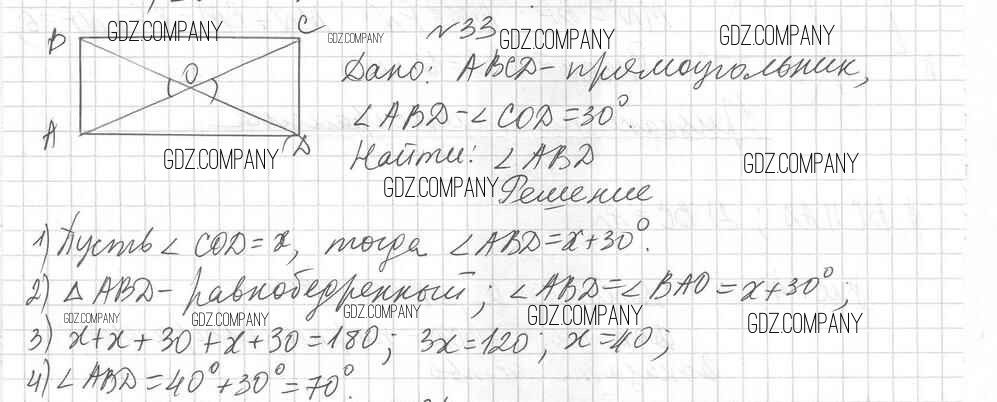 B GDZ.COMPANY C GDZ.COMPANY №33 GDZ.COMPANY GDZ.COMPANY
O Дано: ABCD - прямоугольник,
∠ABD - ∠COD = 30°.
A D
GDZ.COMPANY Найти: ∠ABD GDZ.COMPANY
GDZ.COMPANY Решение
1) Пусть ∠COD = x, тогда ∠ABD = x + 30°.
2) △ABD - равнобедренный; ∠ABD = ∠BAO = x + 30°;
GDZ.COMPANY GDZ.COMPANY GDZ.COMPANY GDZ.COMPANY GDZ.COMPANY
3) x + x + 30 + x + 30 = 180; 3x = 120; x = 40;
4) ∠ABD = 40° + 30° = 70°.